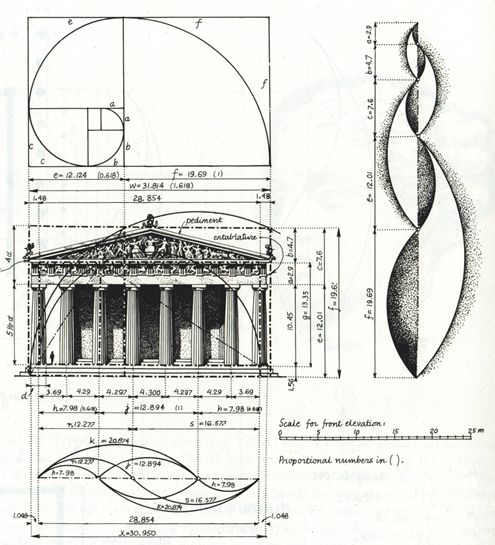 e
f
f
a
a
c
c
b
b
e=12.124 (0.618)
f=19.69 (1)
w=31.814 (1.618)
1.48
28.854
1.48
pediment
entablature
4a
5½a
b=4.7
a=2.9
10.45
1.56
c=7.6
g=13.35
e=12.01
d
3.69 4.29 4.297 4.300 4.297 4.29 3.69
h=7.98 (0.618)
j=12.894 (1)
h=7.98
r=12.277
s=16.577
k=20.874
r=12.277
j=12.894
h=7.98
h=7.98
s=16.577
k=20.874
1.048
28.854
1.048
x=30.950
a=2.9
b=4.7
c=7.6
e=12.01
f=19.69
Scale for front elevation:
0 5 10 15 20 25 m
Proportional numbers in ( ).